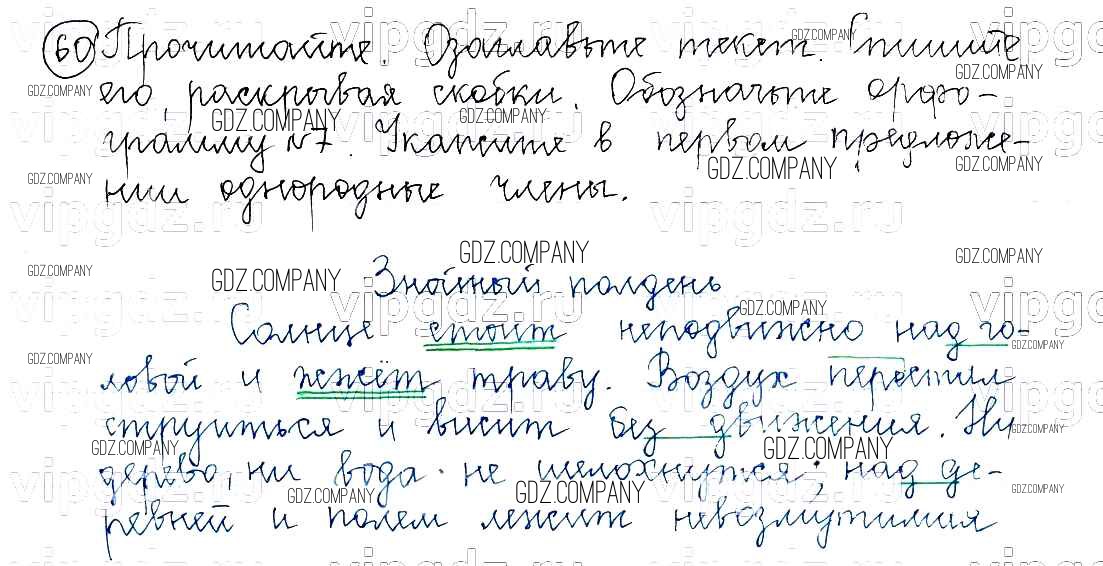 60 Прочитайте. Озаглавьте текст. Спишите
его, раскрывая скобки. Обозначьте орфо-
грамму №7. Укажите в первом предложе-
нии однородные члены.
Знойный полдень
Солнце стоит неподвижно над го-
ловой и жжёт траву. Воздух перестал
струиться и висит без движения. Ни
дерево, ни вода не шелохнутся; над де-
ревней и полем лежит невозмутимая